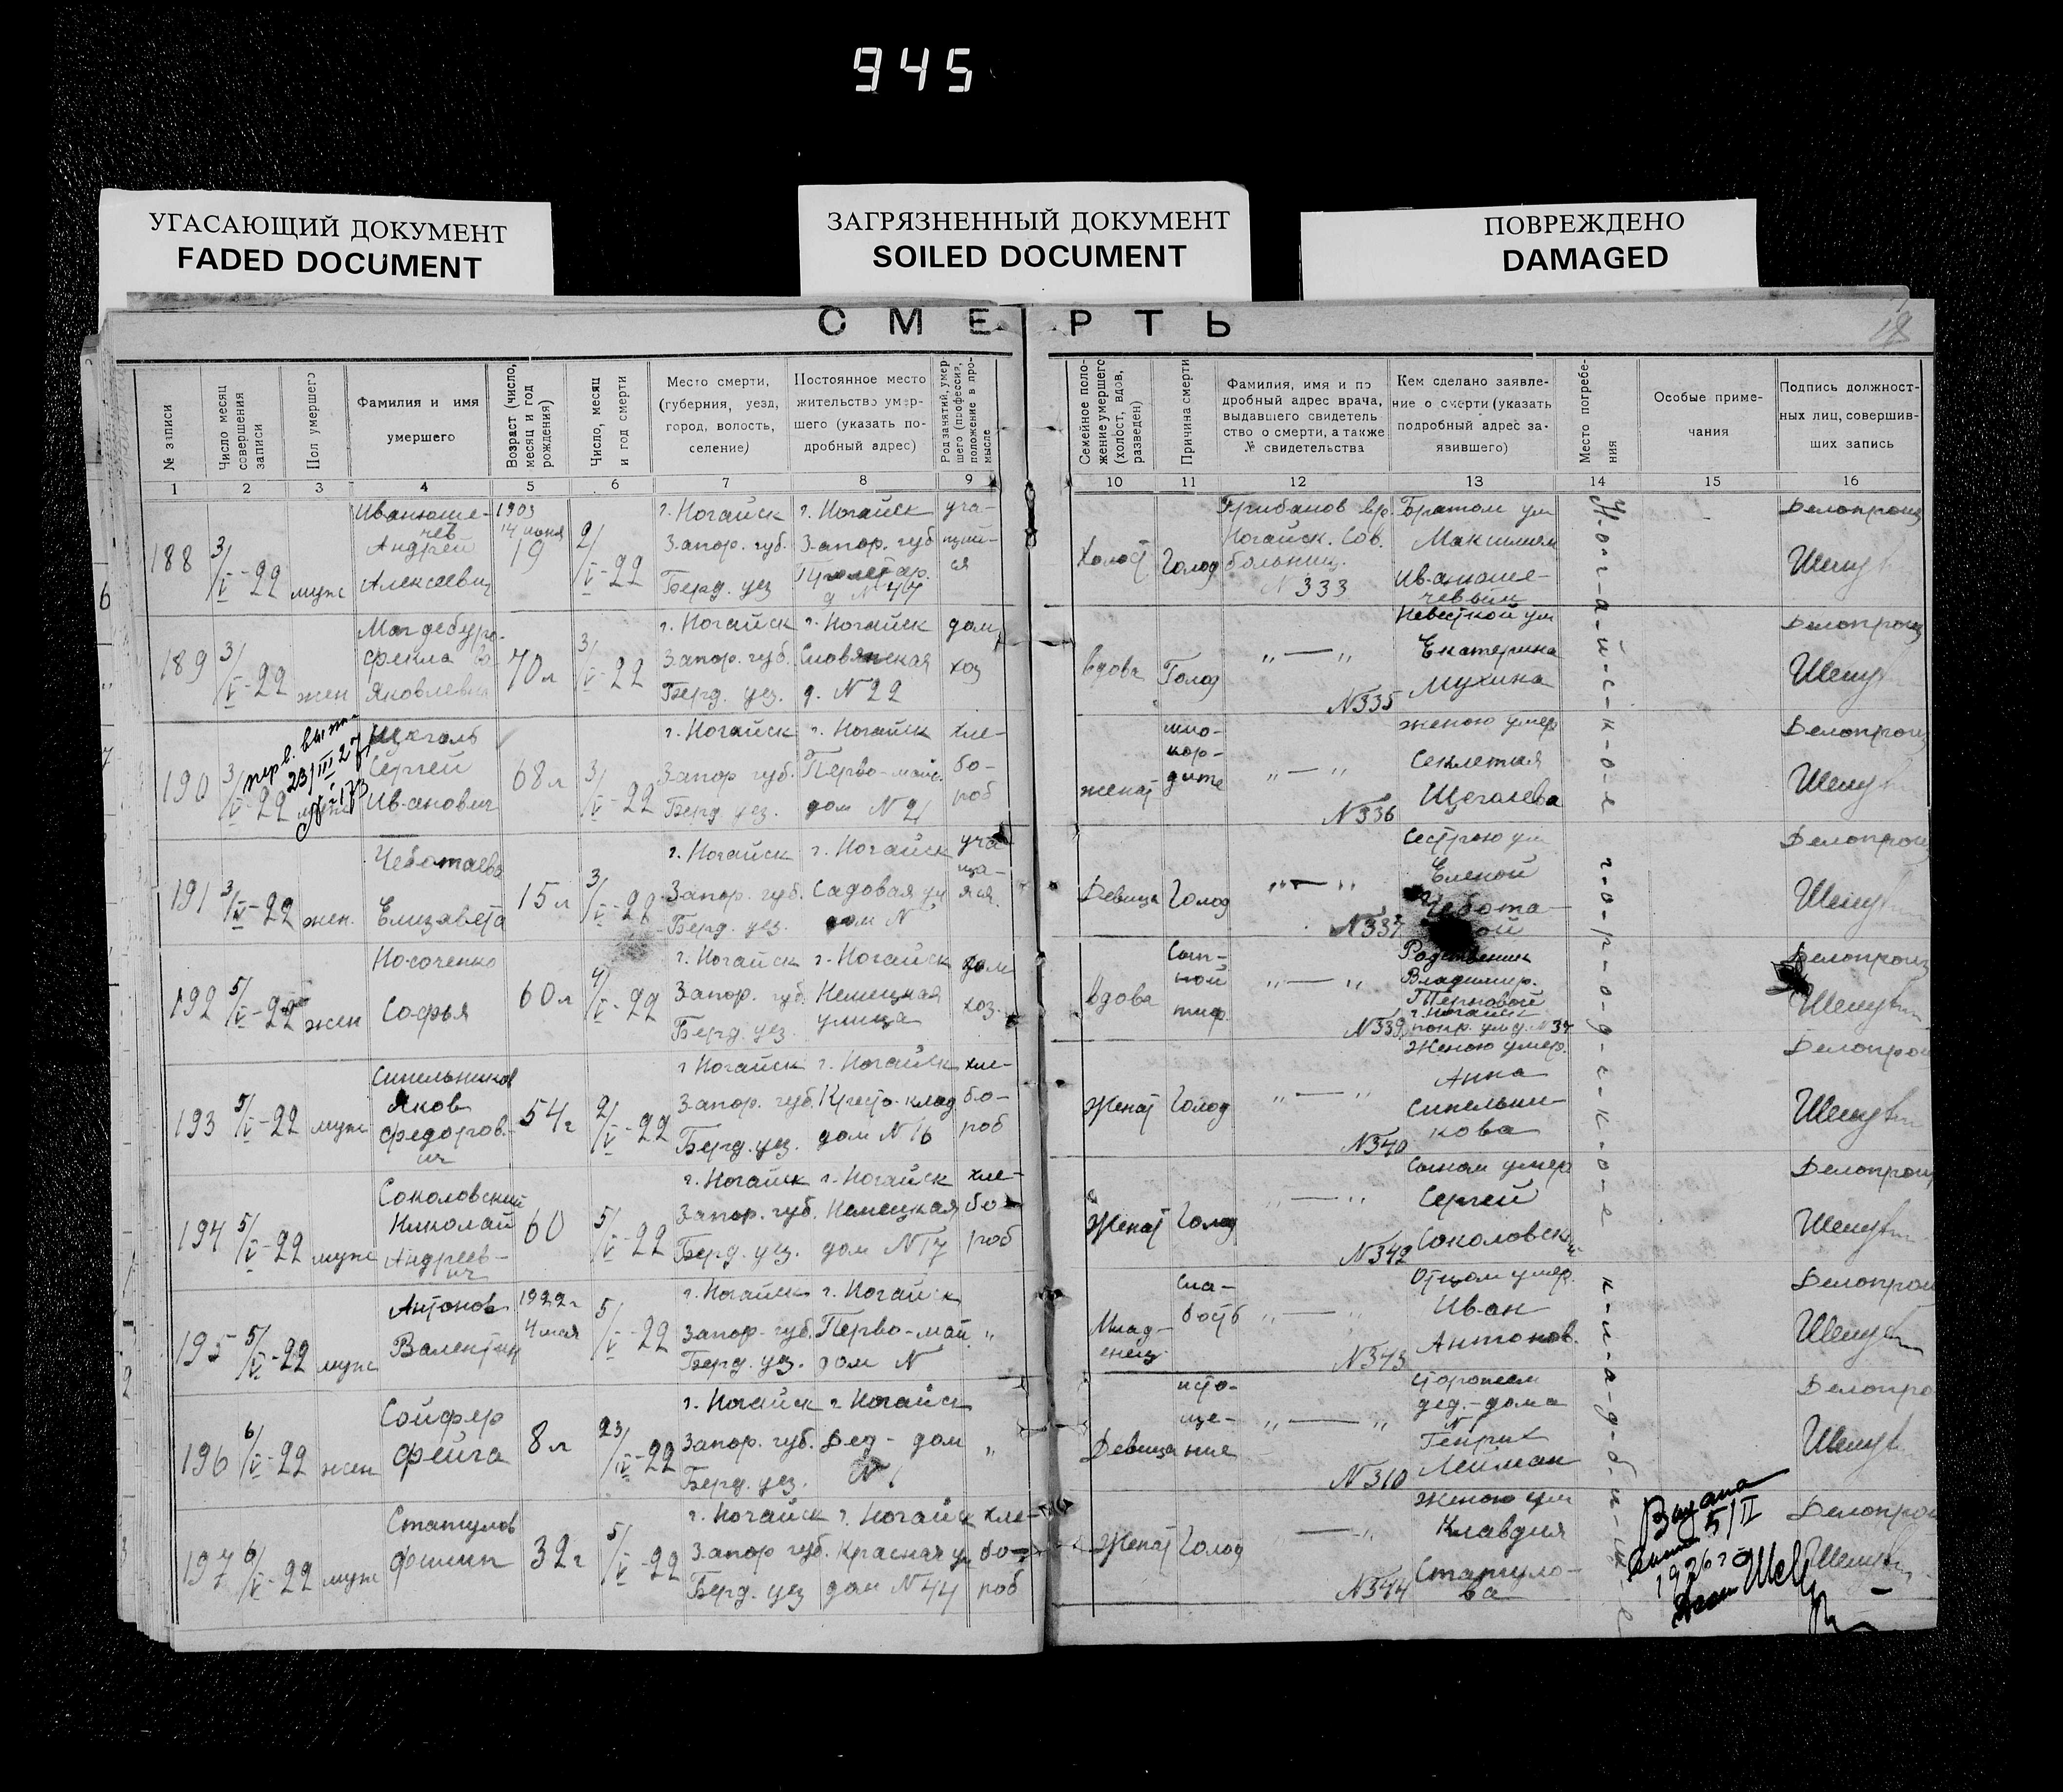 945
УГАСАЮЩИЙ ДОКУМЕНТ
FADED DOCUMENT
ЗАГРЯЗНЕННЫЙ ДОКУМЕНТ
SOILED DOCUMENT
ПОВРЕЖДЕНО
DAMAGED
СМЕРТЬ
18
№ записи
Число месяц совершения записи
Пол умершего
Фамилия и имя умершего
Возраст (число, месяц и год рождения)
Число, месяц и год смерти
Место смерти, (губерния, уезд, город, волость, селение)
Постоянное место жительство умершего (указать подробный адрес)
Род занятий, умершего (профессия, положение в промысле
Семейное положение умершего (холост, вдов, разведен)
Причина смерти
Фамилия, имя и подробный адрес врача, выдавшего свидетельство о смерти, а также № свидетельства
Кем сделано заявление о смерти (указать подробный адрес заявившего)
Место погребения
Особые примечания
Подпись должностных лиц, совершивших запись
1 2 3 4 5 6 7 8 9 10 11 12 13 14 15 16
188 3/V-22 муж
Иванюшечев
Андрей
Алексеевич
1903
14 июня
19
2/V-22
г. Ногайск
Запор. губ.
Берд. уез
г. Ногайск
Запор. губ
Пролетар.
д N 47
уча-
щий-
ся
Холост
Голод
Грибанов вр
Ногайск. Сов.
больниц.
N 333
Братом ум
Максимом
Иванюше-
чевым
Делопроиз
189 3/V-22 жен
Магдебуро-
ва
Фекла
Яковлевна
70 л
3/V-22
г. Ногайск
Запор. губ.
Берд. уез.
г. Ногайск
Словянская
д. N 22
дом
хоз
вдова
Голод
„ — „
N 335
Невесткой ум
Екатерина
Мухина
Делопроиз
190 3/V-22 муж
23/III 27
Щеголь
Сергей
Иванович
68 л
3/V-22
г. Ногайск
Запор губ.
Берд уез.
г. Ногайск
Перво-майс.
дом N 21
хле-
бо-
роб
женат
мио-
кор-
дите
„ — „
N 336
женою умер
Секлетия
Щеголева
Делопроиз
191 3/V-22 жен.
Чеботаева
Елизавета
15 л
3/V-22
г. Ногайск
Запор. губ.
Берд. уез.
г. Ногайск
Садовая ул
дом N
уча
ща-
яся.
Девица
Голод
„ — „
N 337
Сестрою ум
Еленой
Чебота-
ой
Делопроиз
192 5/V-22 жен
Носоченко
Софья
60 л
4/V-22
г. Ногайск
Запор. губ.
Берд. уез.
г. Ногайск
Немецкая
улица
дом
хоз.
вдова
Сып-
ной
тиф.
„ — „
N 339
Родственник
Владимир.
Терновой
г. Ногайск
ул д. N 37
Делопроиз
193 5/V-22 муж
Синельников
Яков
Федоров-
ич
54 г
2/V-22
г Ногайск
Запор. губ.
Берд. уез.
г. Ногайск
Кресто-клад
дом N 16
хле-
бо-
роб
Женат
Голод
„ — „
N 340
Женою умер.
Анна
Синельни-
кова
Делопрои
194 5/V-22 муж
Соколовский
Николай
Андреев-
ич
60
5/V-22
г. Ногайск
Запор. губ.
Берд. уез.
г. Ногайск
Немецкая
дом N 17
хле-
бо-
роб
Женат
Голод
„ — „
N 342
Сыном умер
Сергей
Соколовский
Делопроиз
195 5/V-22 муж
Антонов
Валентин
1922 г
4 мая
5/V-22
г. Ногайск
Запор. губ.
Берд. уез.
г. Ногайск
Перво-май
дом N
„
Млад-
енец
Сла-
бость
„ — „
N 343
Отцом умер.
Иван
Антонов.
Делопрои
196 6/V-22 жен
Сойфер
Фейга
8 л
23/IV-22
г. Ногайск
Запор. губ.
Берд. уез.
г Ногайск
Дед - дом
N 1
„
Девица
исто-
ще-
ние
„ — „
N 310
Сторожем
дед.-дома
N 1
Генрих
Лейман
Делопро
197 6/V-22 муж
Статулов
Филип
32 г
5/V-22
г. Ногайск
Запор губ.
Берд. уез
г. Ногайск
Красная ул
дом N 44
хле-
бо-
роб
Женат
Голод
— „
N 344
Женою ум
Клавдия
Статуло-
ва
Делопрои
Н-о-г-а-й-с-к-о-е г-о-р-о-д-с-к-о-е к-л-а-д-б-и-щ-е
5/II
1926 г